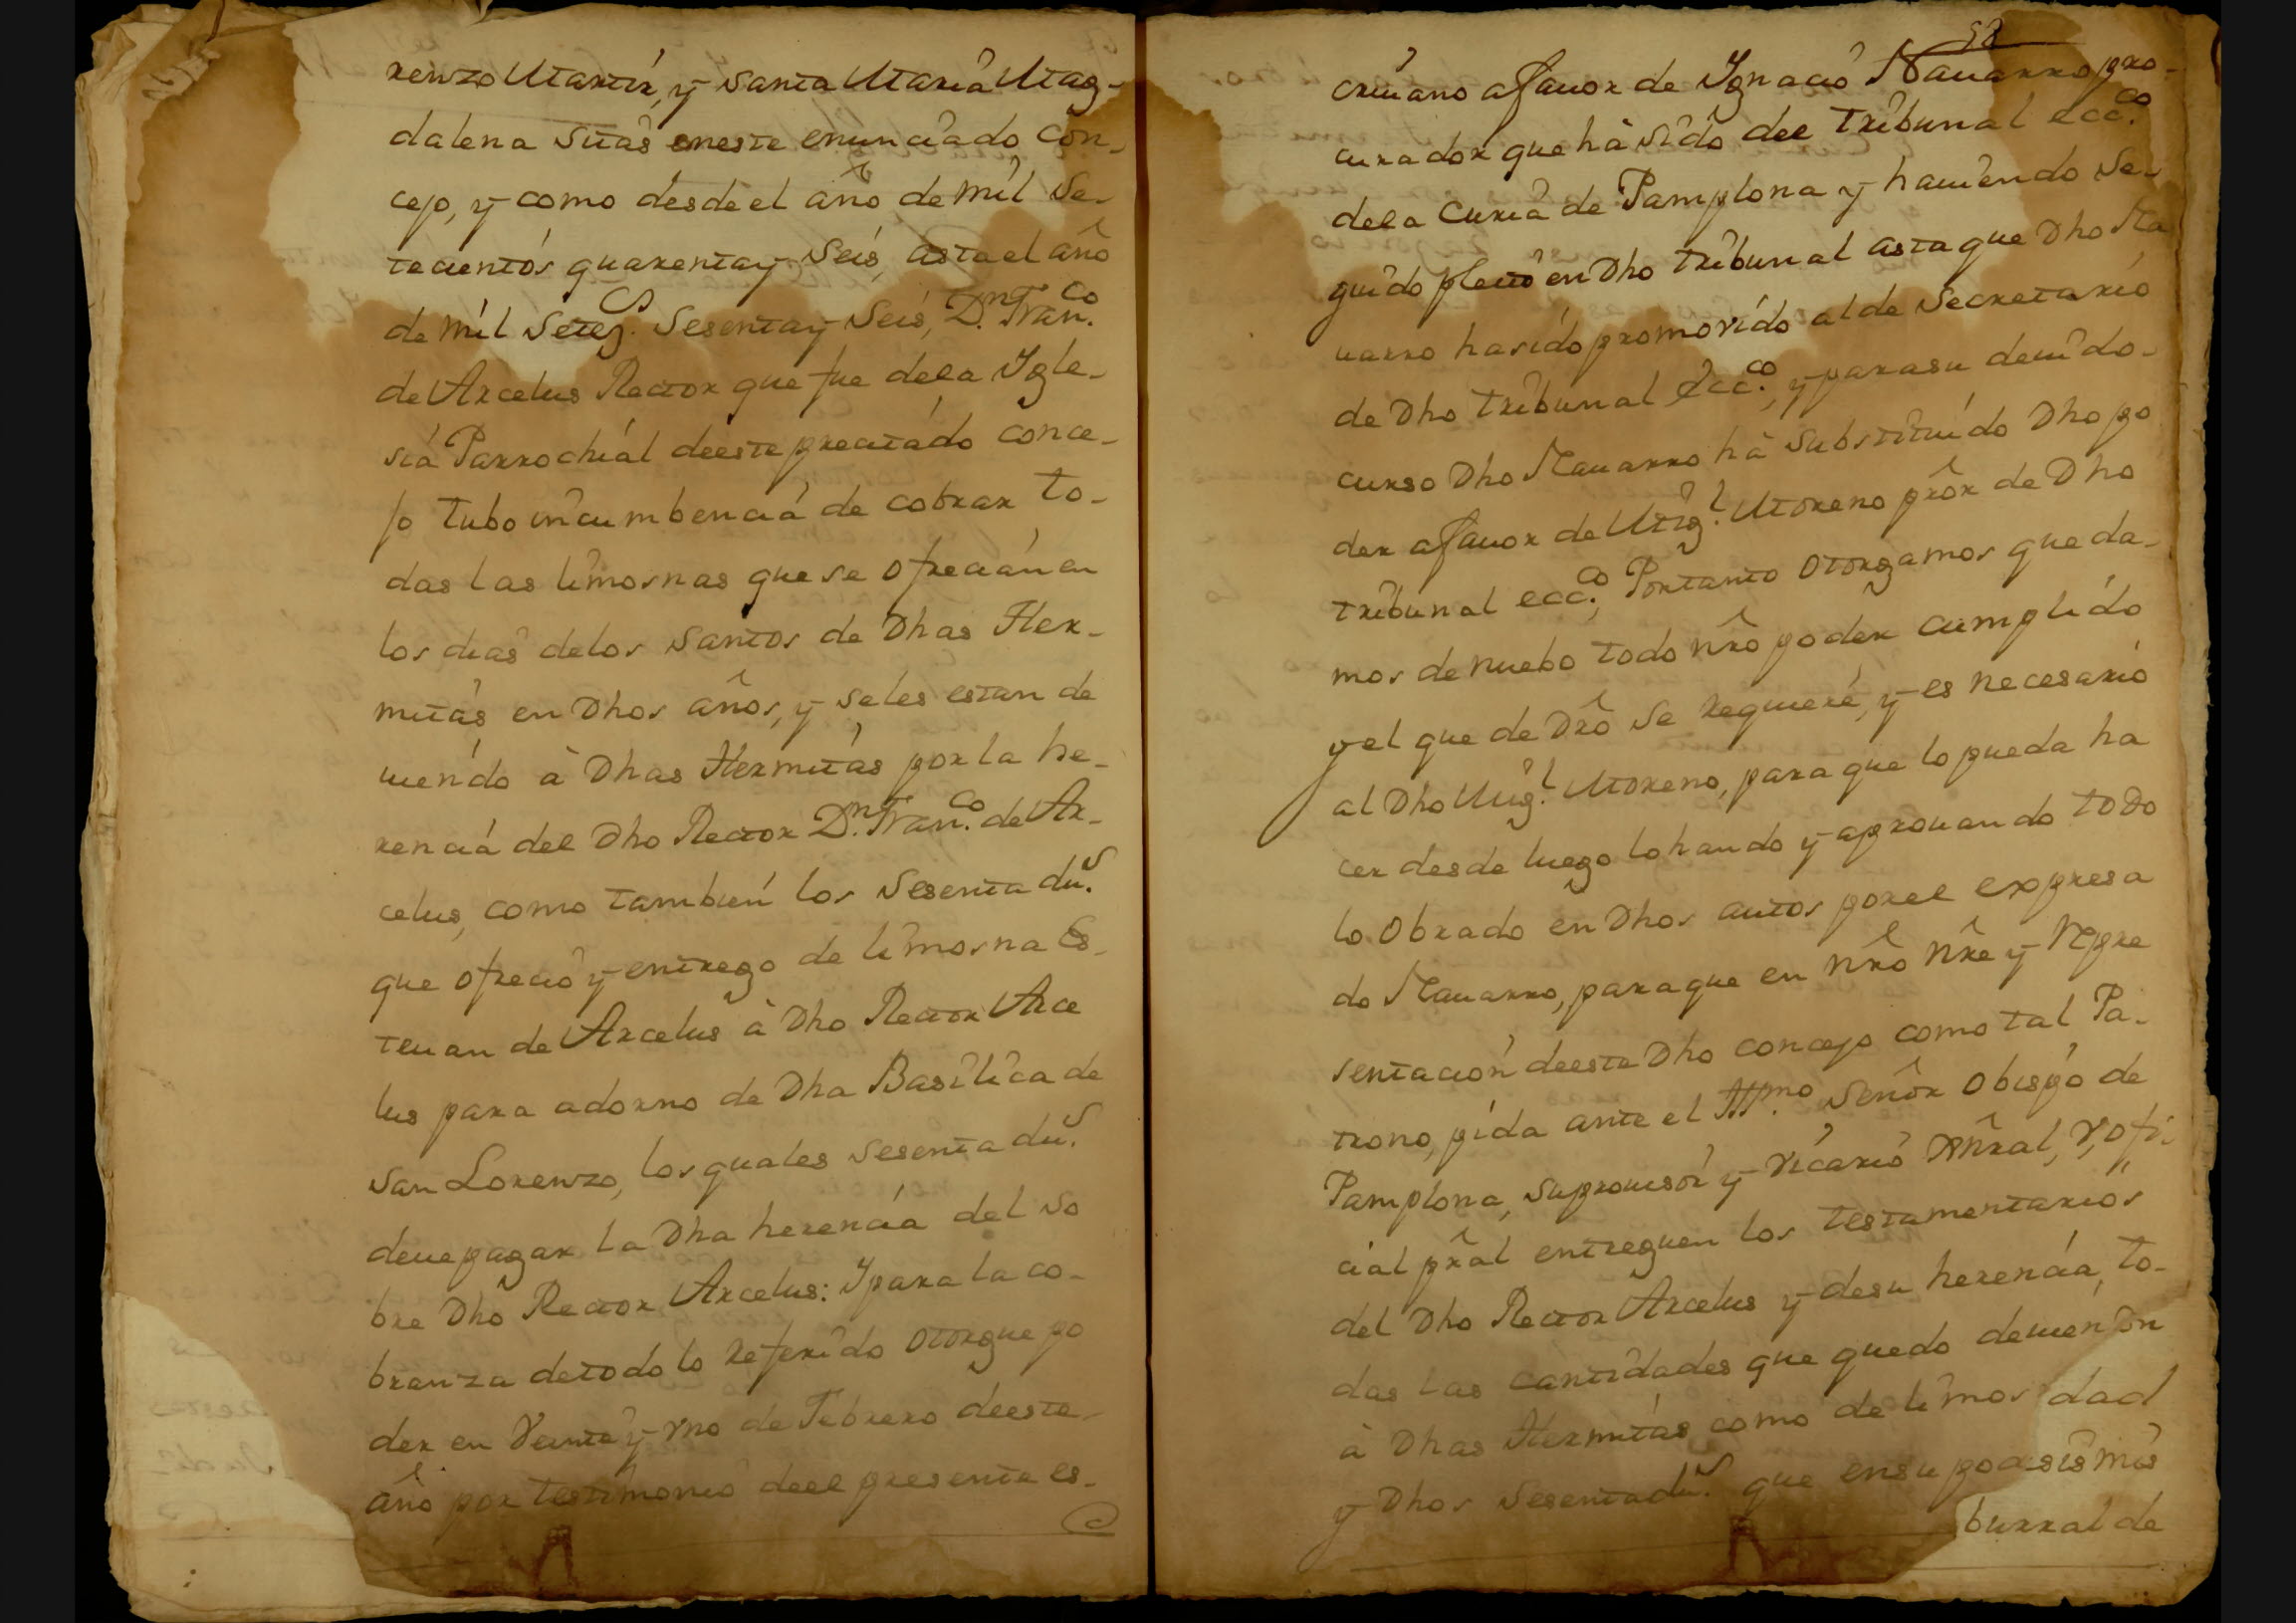 renzo Martir, y Santa Maria Mag-
dalena sitas en este enunciado con-
cejo, y como desde el año de mil se-
tecientos quarenta y seis, asta el año
de mil setez.s sesenta y seis, D.n Fran.co
de Arcelus Rector que fue de la Ygle-
sia Parrochial de este precitado conce-
jo tubo incumbencia de cobrar to-
das las limosnas que se ofrecian en
los dias de los Santos de Dhas Her-
mitas en Dhos años, y se les estan de
uiendo à Dhas Hermitas por la he-
rencia del Dho Rector D.n Fran.co de Ar-
celus, como tambien los sesenta du.s
que ofrecio y entrego de limosna Es-
teuan de Arcelus à Dho Rector Arce
lus para adorno de Dha Basilica de
San Lorenzo, los quales sesenta du.s
deue pagar la Dha herencia del so
bre Dho Rector Arcelus: Y para la co-
branza de todo lo referido otorgue po
der en Veinte y vno de Febrero de este
año por testimonio de el presente es-
58
criuano a fauor de Ygnacio Nauarro pro-
curador que hà sido del tribunal ecc.co
de la Curia de Pamplona y hauiendo se-
guido pleito en Dho tribunal asta que Dho Na
uarro ha sido promovido al de Secretario
de Dho tribunal ecc.co, y para su deuido
curso Dho Nauarro hà substituido Dho po
der a fauor de Mig.l Moreno prôr de Dho
tribunal ecc.co, Portanto otorgamos que da-
mos de nuebo todo nrô poder cumplido
y el que de Drô se requiere, y es necesario
al Dho Mig.l Moreno, para que lo pueda ha
cer desde luego lohando y aprouando todo
lo obrado en Dhos autos por el expresa
do Nauarro, para que en nrô nrê y repre
sentacion de este Dho concejo como tal Pa-
trono, pida ante el Ill.mo Señor Obispo de
Pamplona, su prouisor y Vicario Gñral, y, ofi-
cial prâl entreguen los testamentarios
del Dho Rector Arcelus y de su herencia, to-
das las cantidades que quedo deuiendon
à Dhas Hermitas como de limos dad
y Dhos sesenta du.s que en su po asismis
burral de